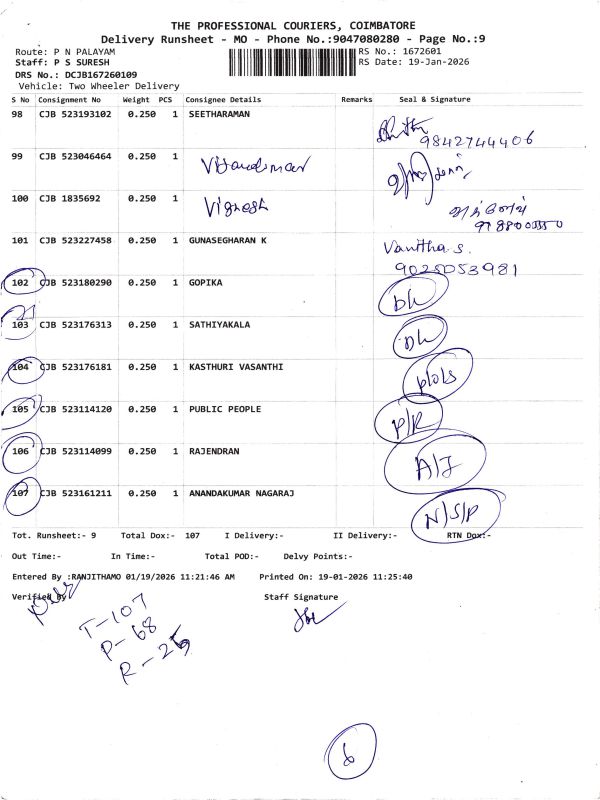 THE PROFESSIONAL COURIERS, COIMBATORE
Delivery Runsheet - MO - Phone No.:9047080280 - Page No.:9
Route: P N PALAYAM RS No.: 1672601
Staff: P S SURESH RS Date: 19-Jan-2026
DRS No.: DCJB167260109
Vehicle: Two Wheeler Delivery
S No Consignment No Weight PCS Consignee Details Remarks Seal & Signature
98 CJB 523193102 0.250 1 SEETHARAMAN
9842744406
99 CJB 523046464 0.250 1
100 CJB 1835692 0.250 1 Vignesh
101 CJB 523227458 0.250 1 GUNASEGHARAN K Vanitha S.
9025053981
102 CJB 523180290 0.250 1 GOPIKA DL
103 CJB 523176313 0.250 1 SATHIYAKALA DL
104 CJB 523176181 0.250 1 KASTHURI VASANTHI
105 CJB 523114120 0.250 1 PUBLIC PEOPLE P/R
106 CJB 523114099 0.250 1 RAJENDRAN A/J
107 CJB 523161211 0.250 1 ANANDAKUMAR NAGARAJ N/S/P
Tot. Runsheet:- 9 Total Dox:- 107 I Delivery:- II Delivery:- RTN Dox:-
Out Time:- In Time:- Total POD:- Delvy Points:-
Entered By :RANJITHAMO 01/19/2026 11:21:46 AM Printed On: 19-01-2026 11:25:40
Verified By Staff Signature
T-107
P-68
R-26
6